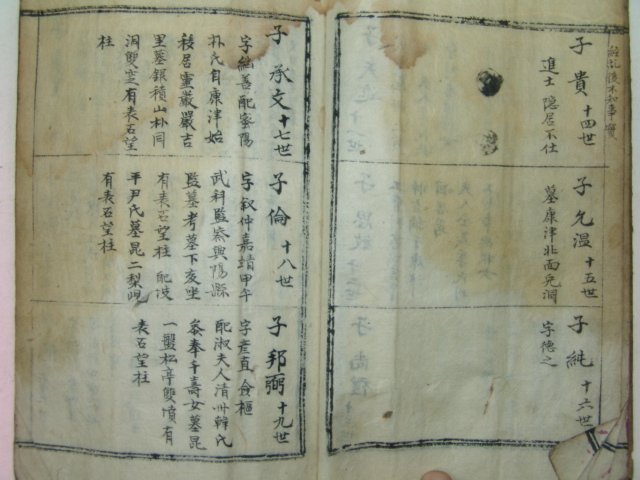 子貴 十四世
進士 隱居不仕
子允溫 十五世
墓康津北面兎洞
子純 十六世
字德之
子承文 十七世
字結善 配密陽
朴氏自康津始
移居靈巖嚴吉
里墓銀積山朴同
洞雙窆有表石望
柱
子倫 十八世
字叙仲嘉靖甲午
武科監察興陽縣
監墓考墓下亥坐
有表石望柱 配坡
平尹氏墓昆二梨
有表石望柱
子邦弼 十九世
字彦直 僉樞
配淑夫人清州韓氏
參奉千壽女墓昆
一盤松亭雙墳有
表石望柱